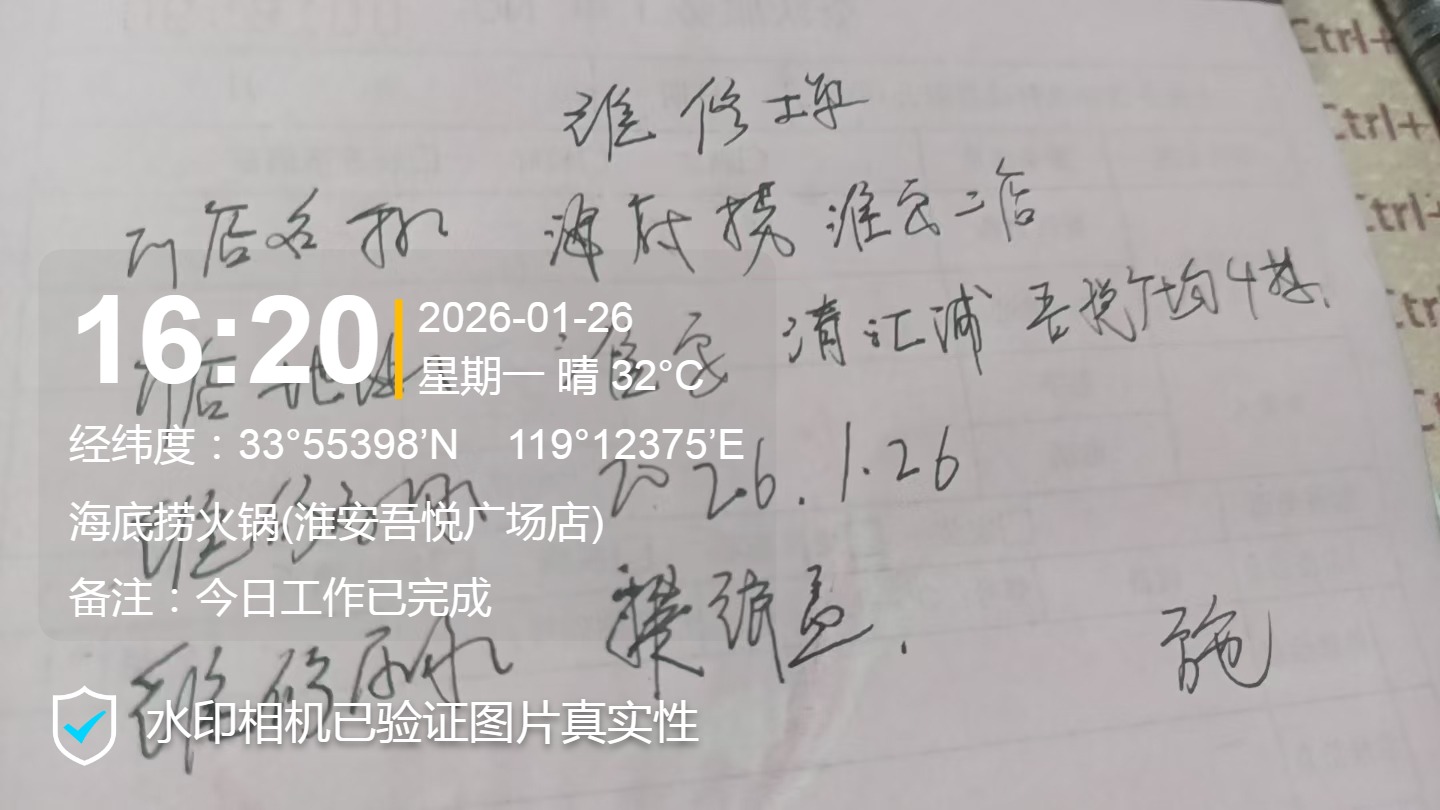 维修单
门店名称 海底捞淮安二店
门店地址 淮安 清江浦 吾悦广场4楼
16:20
2026-01-26
星期一 晴 32°C
经纬度：33°55398’N 119°12375’E
维修时间 2026.1.26
海底捞火锅(淮安吾悦广场店)
备注：今日工作已完成
维修
水印相机已验证图片真实性
Ctrl+
Ctrl+
Ctrl+